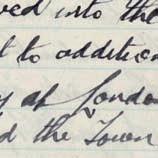 ved into the
t to addition
y at London
d the Town